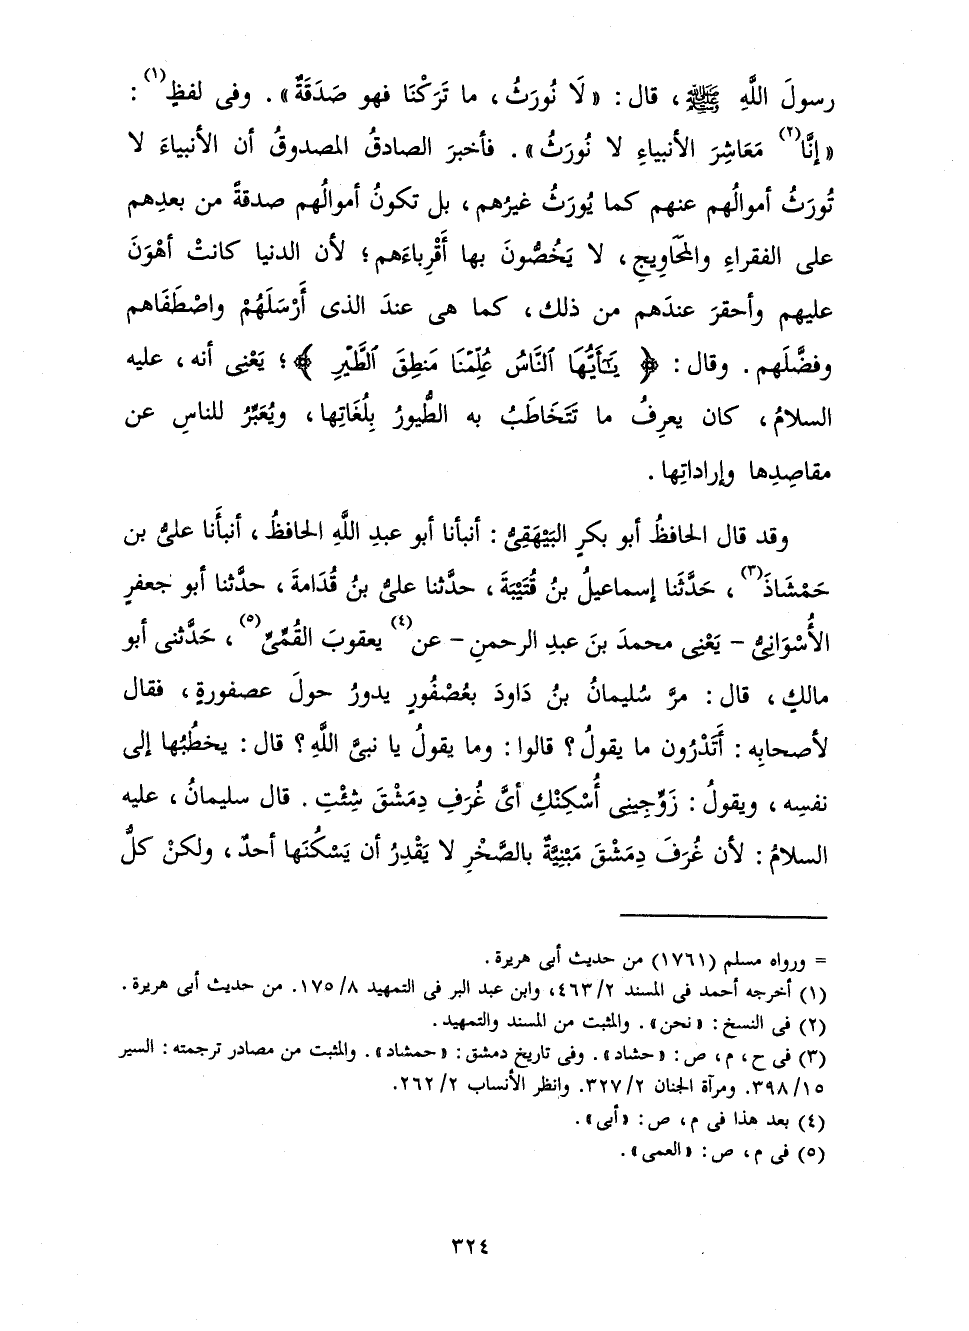 رسولَ اللَّهِ ﷺ، قال: «لَا نُورَثُ، ما تَرَكْنَا فهو صَدَقَةٌ». وفى لفظٍ(١):
«إنَّا(٢) مَعَاشِرَ الأنبياءِ لا نُورَثُ». فأخبرَ الصادقُ المصدوقُ أن الأنبياءَ لا
تُورَثُ أموالُهم عنهم كما يُورَثُ غيرُهم، بل تكونُ أموالُهم صدقةً من بعدِهم
على الفقراءِ والمحَاوِيجِ، لا يَخُصُّونَ بها أَقْرِباءَهم؛ لأن الدنيا كانتْ أهْوَنَ
عليهم وأحقرَ عندَهم من ذلك، كما هى عندَ الذى أَرْسَلَهُمْ واصْطَفَاهم
وفضَّلَهم. وقال: ﴿يَٰٓأَيُّهَا ٱلنَّاسُ عُلِّمْنَا مَنطِقَ ٱلطَّيْرِ﴾؛ يَعْنِى أنه، عليه
السلامُ، كان يعرِفُ ما تَتَخَاطَبُ به الطُّيورُ بِلُغَاتِها، ويُعَبِّرُ للناسِ عن
مقاصِدِها وإراداتِها.
وقد قال الحافظُ أبو بكرٍ البَيْهَقِىُّ: أنبأنا أبو عبدِ اللَّهِ الحافظُ، أنبأَنا علىُّ بن
حَمْشَاذَ(٣)، حَدَّثَنا إسماعيلُ بنُ قُتَيْبَةَ، حدَّثنا علىُّ بنُ قُدَامةَ، حدَّثنا أبو جعفرٍ
الأُسْوَانِىُّ - يَعْنِى محمدَ بنَ عبدِ الرحمنِ - عن(٤) يعقوبَ القُمِّىِّ(٥)، حَدَّثنى أبو
مالكٍ، قال: مرَّ سُليمانُ بنُ دَاودَ بعُصْفُورٍ يدورُ حولَ عصفورةٍ، فقال
لأصحابِه: أَتَدْرُون ما يقولُ؟ قالوا: وما يقولُ يا نبىَّ اللَّهِ؟ قال: يخطُبُها إلى
نفسِه، ويقولُ: زَوِّجِينِى أُسْكِنْكِ أىَّ غُرَفِ دِمَشْقَ شِئْتِ. قال سليمانُ، عليه
السلامُ: لأن غُرَفَ دِمَشْقَ مَبْنِيَّةٌ بالصَّخْرِ لا يَقْدِرُ أن يَسْكُنَها أحدٌ، ولكنْ كلُّ
= ورواه مسلم (١٧٦١) من حديث أبى هريرة.
(١) أخرجه أحمد فى المسند ٤٦٣/٢، وابن عبد البر فى التمهيد ١٧٥/٨. من حديث أبى هريرة.
(٢) فى النسخ: «نحن». والمثبت من المسند والتمهيد.
(٣) فى ح، م، ص: «حشاد». وفى تاريخ دمشق: «حمشاد». والمثبت من مصادر ترجمته: السير
٣٩٨/١٥. ومرآة الجنان ٣٢٧/٢. وانظر الأنساب ٢٦٢/٢.
(٤) بعد هذا فى م، ص: «أبى».
(٥) فى م، ص: «العمى».
٣٢٤